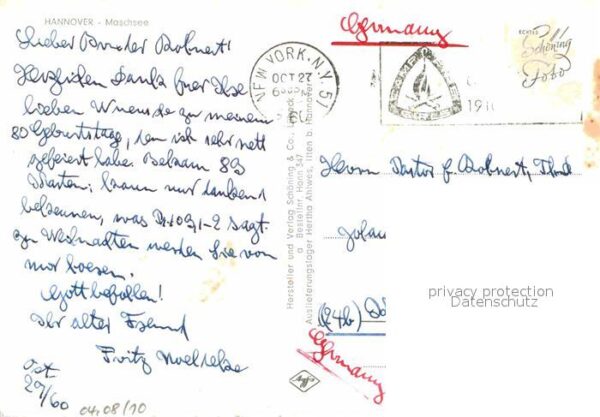 HANNOVER - Maschsee
Lieber Bruder Bohnert!
Herzlichen Dank fuer Ihre
lieben Wuensche zu meinem
80 Geburtstage, den ich sehr nett
gefeiert habe. Bekam 89
Karten; kann nur dankend
bekennen, was 1-2 sagt.
zu Weihnachten werden Sie von
mir hoeren.
Gott befohlen!
Ihr alter Freund
Fritz
Oct
29/60
04/08/10
Germany
NEW YORK, N.Y. 51
OCT 27
ECHTES
Schöning
Foto
Herrn Pastor f. Bohnert,
(24b)
Germany
Hersteller und Verlag Schöning & Co., Lübeck
Bestellnr. Hann 347
Auslieferungslager Hertha Ahlwes, Ilten b. Hannover
privacy protection
Datenschutz